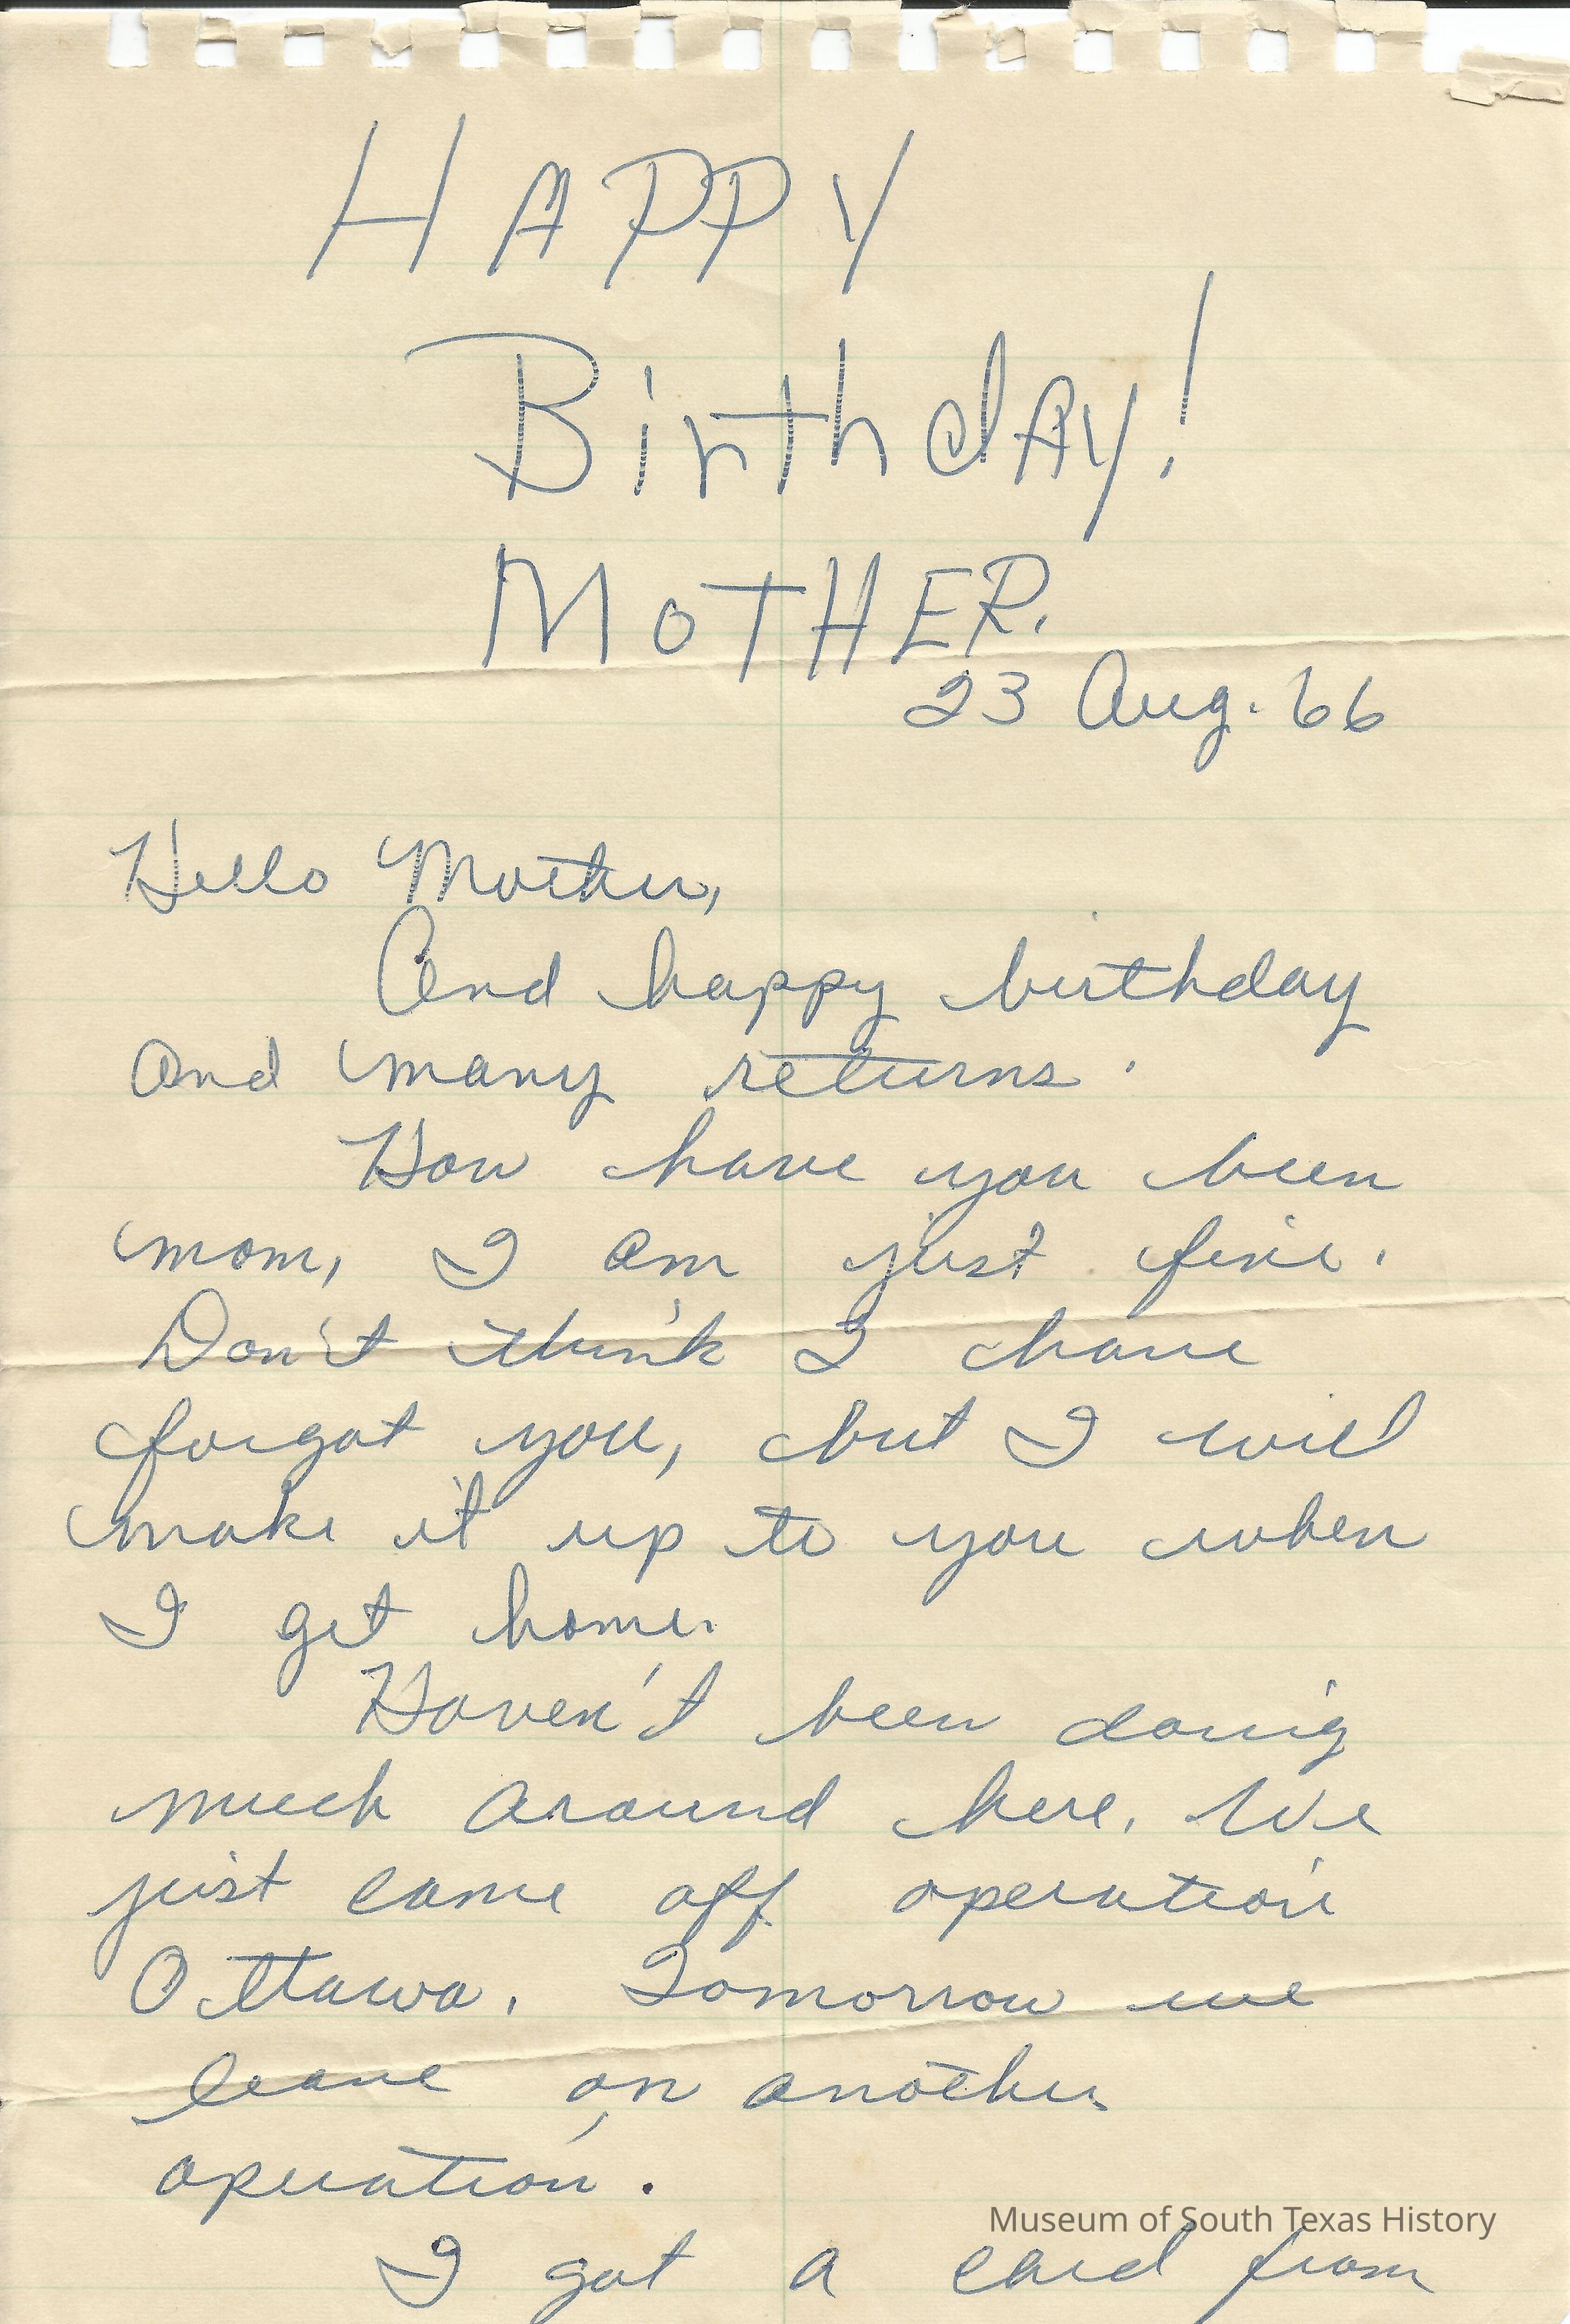 HAPPY
BirthdAy!
MoTHER.
23 Aug. 66
Hello Mother,
And happy birthday
and many returns.
How have you been
mom, I am just fine.
Don't think I have
forgot you, but I will
make it up to you when
I get home.
Haven't been doing
much around here. We
just came off operation
Ottawa. Tomorrow we
leave on another
operation.
Museum of South Texas History
I got a card from